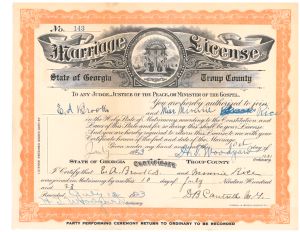 No. 143
Marriage License
State of Georgia Troup County
To any Judge, Justice of the Peace, or Minister of the Gospel.
You are hereby authorized to join
E A Brooks and Miss Minnie Rice
in the Holy State of Matrimony according to the Constitution and
Laws of this State and for so doing this shall be your License.
And you are hereby required to return this License to me with your
Certificate hereon of the
July
H. T. Woodyard
Ordinary
Certificate
State of Georgia Troup County
I Certify that E. A. Brooks and Minnie Rice
were joined in Matrimony by me this 10 day of July Nineteen Hundred
and
Recorded July
Ordinary
Party performing ceremony return to Ordinary to be recorded